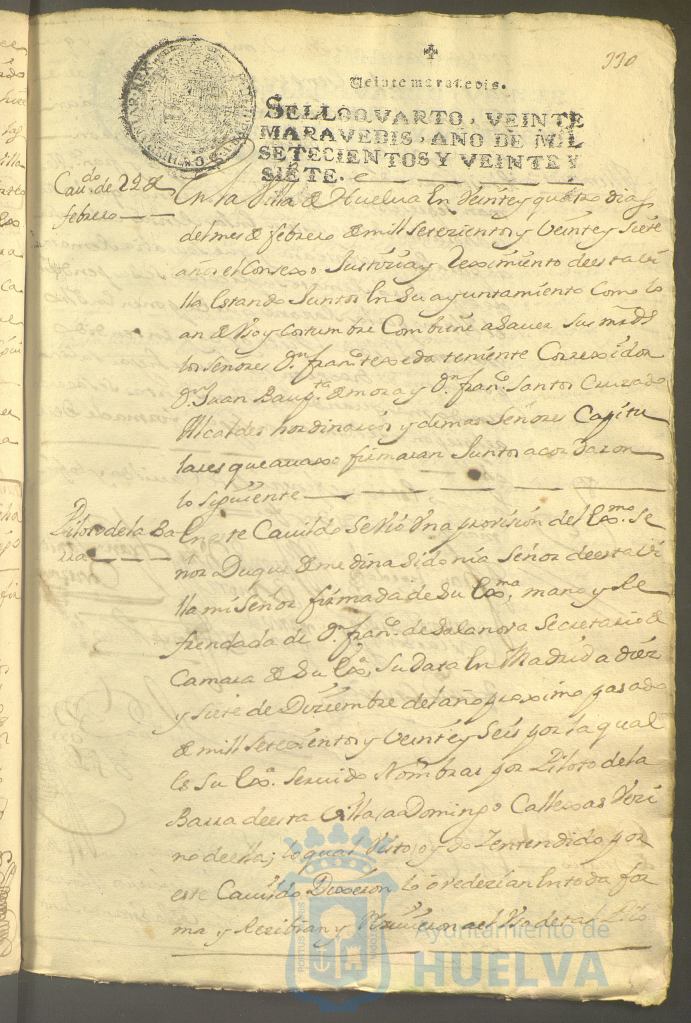 330
Veinte maravedis.
SELLO QVARTO, VEINTE
MARAVEDIS, AÑO DE MIL
SETECIENTOS Y VEINTE Y
SIETE.
Cavdo. de 24 de
febrero
En la Villa de Huelva En Veinte y quatro dias
del mes de febrero de mill setezientos y Veinte y siete
años el Consexo Justizia y Reximiento de esta Vi
lla Estando Juntos En su ayuntamiento Como lo
an de Vso y Costumbre Combiene a Saver Sus mrds.
los Señores Dn. franco. texeda teniente Correxidor
Dn. Juan Baupta. de mora y Dn. franco. Santos Cruzado
Alcaldes hordinarios y demas Señores Capitu
lares que avaxo firmaran Juntos acordaron
lo siguiente
Piloto de la Ba
rra
En este Cavildo Se Vio Una provision del Exmo. Se
ñor Duque de medina Sidonia Señor de esta Vi
lla mi Señor firmada de Su Exa. mano y Re
frendada de Dn. franco. de Salanova Secretario de
Camara de Su Exa. Su Data En Madrid a diez
y siete de Diziembre del año proximo pasado
de mill setezientos y Veinte y Seis por la qual
es Su Exa. Servido Nombrar por Piloto de la
Barra de esta Villa a Domingo Callexas Vezi
no de ella; lo qual Visto y Entendido por
este Cavildo Dixeron lo ovedezian En toda for
ma y Rezibian y al Vso de tal Pilo
Ayuntamiento de
HUELVA